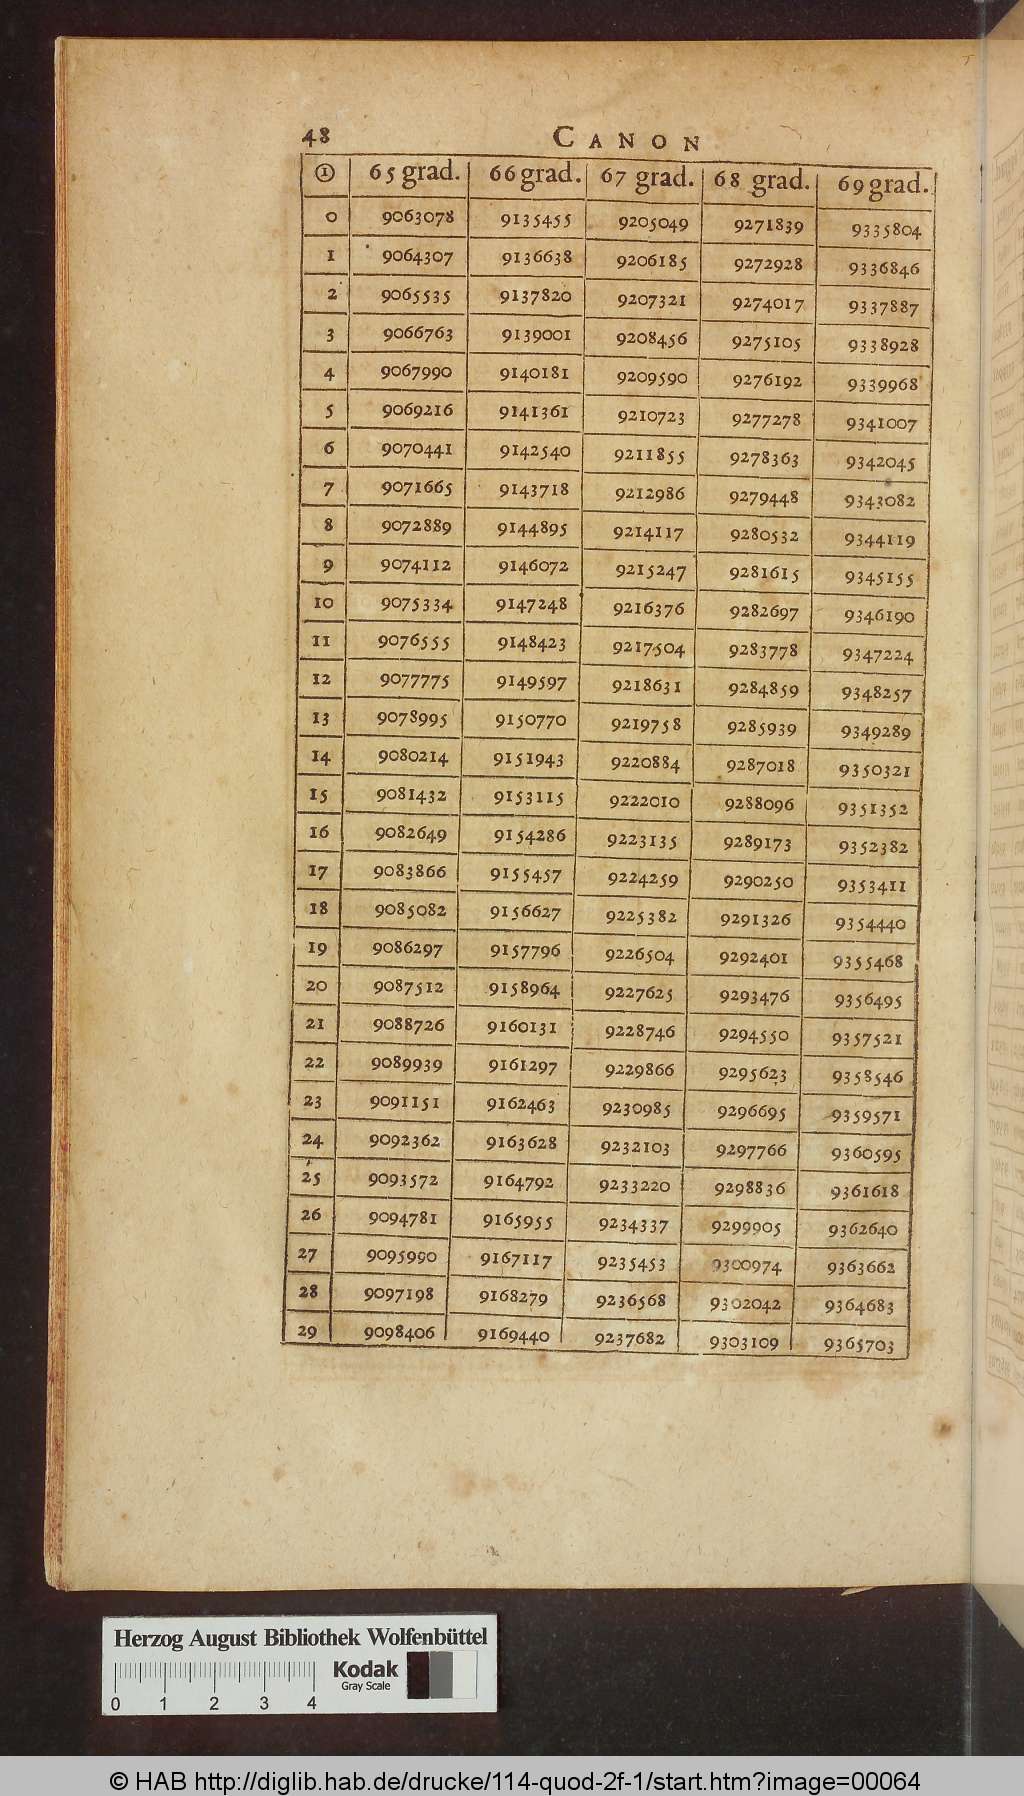 48 CANON
① 65 grad. 66 grad. 67 grad. 68 grad. 69 grad.
0 9063078 9135455 9205049 9271839 9335804
1 9064307 9136638 9206185 9272928 9336846
2 9065535 9137820 9207321 9274017 9337887
3 9066763 9139001 9208456 9275105 9338928
4 9067990 9140181 9209590 9276192 9339968
5 9069216 9141361 9210723 9277278 9341007
6 9070441 9142540 9211855 9278363 9342045
7 9071665 9143718 9212986 9279448 9343082
8 9072889 9144895 9214117 9280532 9344119
9 9074112 9146072 9215247 9281615 9345155
10 9075334 9147248 9216376 9282697 9346190
11 9076555 9148423 9217504 9283778 9347224
12 9077775 9149597 9218631 9284859 9348257
13 9078995 9150770 9219758 9285939 9349289
14 9080214 9151943 9220884 9287018 9350321
15 9081432 9153115 9222010 9288096 9351352
16 9082649 9154286 9223135 9289173 9352382
17 9083866 9155457 9224259 9290250 9353411
18 9085082 9156627 9225382 9291326 9354440
19 9086297 9157796 9226504 9292401 9355468
20 9087512 9158964 9227625 9293476 9356495
21 9088726 9160131 9228746 9294550 9357521
22 9089939 9161297 9229866 9295623 9358546
23 9091151 9162463 9230985 9296695 9359571
24 9092362 9163628 9232103 9297766 9360595
25 9093572 9164792 9233220 9298836 9361618
26 9094781 9165955 9234337 9299905 9362640
27 9095990 9167117 9235453 9300974 9363662
28 9097198 9168279 9236568 9302042 9364683
29 9098406 9169440 9237682 9303109 9365703
Herzog August Bibliothek Wolfenbüttel
Kodak
Gray Scale
0 1 2 3 4
© HAB http://diglib.hab.de/drucke/114-quod-2f-1/start.htm?image=00064